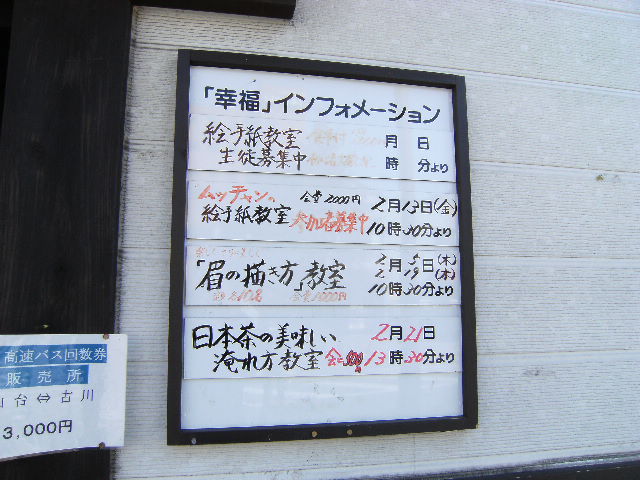 「幸福」インフォメーション
絵手紙教室 月 日
生徒募集中 時 分より
ムッチャンの 会費2000円 2月13日(金)
絵手紙教室 参加者募集中 10時30分より
2月5日(木)
2月19日(木)
「眉の描き方」教室
会費1000円 10時30分より
日本茶の美味しい 2月21日
淹れ方教室 会 13時30分より
高速バス回数券
販売所
台⇔古川
3,000円